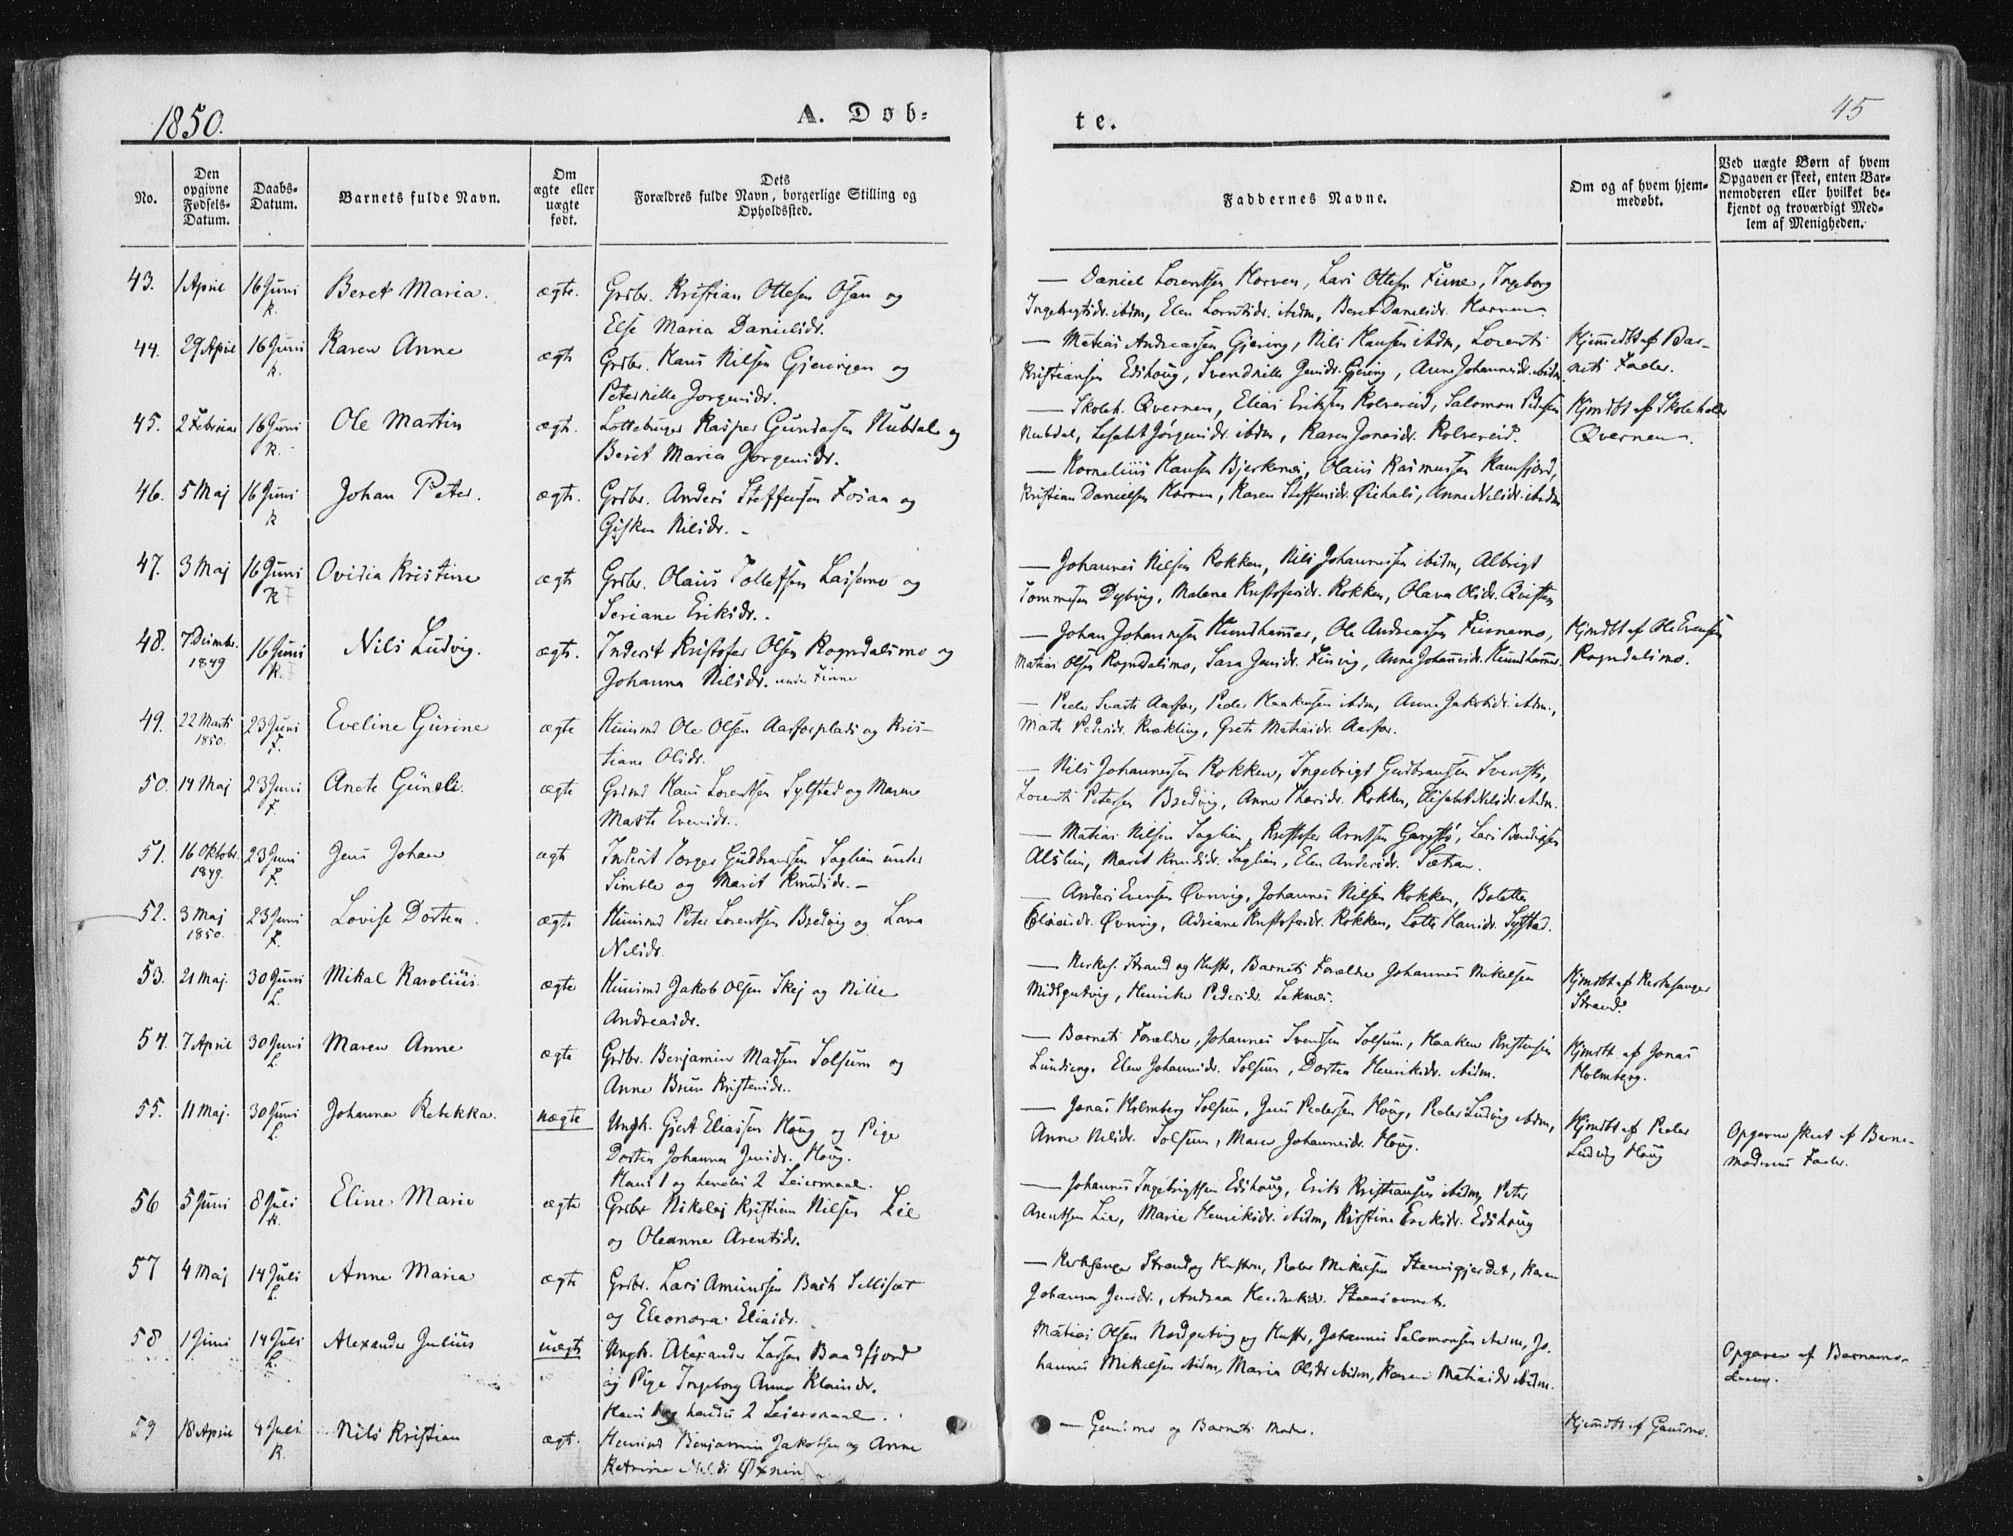 1850.
A. Døb-
te.
45
No.
Den opgivne Fødsels-Datum.
Daabs-Datum.
Barnets fulde Navn.
Om ægte eller uægte født.
Dets Forældres fulde Navn, borgerlige Stilling og Opholdssted.
Faddernes Navne.
Om og af hvem hjem-medøbt.
Ved uægte Børn af hvem Opgaven er skeet, enten Bar-nemoderen eller hvilket be-kjendt og troværdigt Med-lem af Menigheden.
43. 1 April 16 Juni K. Beret Maria. ægte. Grdbr. Kristian Ottesen Osen og
Else Maria Danielsdr.
— Daniel Lorentsen Horven, Lars Ottesen Finne, Ingeborg
Ingebrigtsdr. ibidm, Elen Lorntsdr. ibidm, Beret Danielsdr. Horven
44. 29 April 16 Juni K. Karen Anne ægte Grdbr. Hans Nilsen Gjeringen og
Peternille Jørgensdr.
— Matias Andreassen Gjering, Nils Hansen ibidm, Lorents
Kristiansen Edshoug, Svendnille Jensdr. Gjering, Anne Johannesdr. ibidm.
Hjemmedøbt af Bar-
nets Fader.
45. 2 Februar 16 Juni K. Ole Martin ægte. Kasper Gundersen Nubdal og
Beret Maria Jørgensdr.
— Skoleh. Qvernen, Elias Eriksen Kolvereid, Salomon Pedersen
Nubdal, Lisabet Jørgensdr. ibidm, Karen Jonasdr. Kolvereid.
Hjmdbt af Skoleholder
Qvernen.
46. 5 Maj 16 Juni K Johan Peter. ægte. Grdbr. Anders Steffensen Fosaa og
Gisken Nilsdr.
— Kornelius Hansen Bjerkenes, Olaus Rasmussen Kamfjord,
Kristian Danielsen Horven, Karen Steffensdr. Anne Nilsdr. ibidm
47. 3 Maj 16 Juni K Ovidia Kristine ægte Grdbr. Olaus Tollefsen Lassemo og
Seriane Eriksdr.
— Johannes Nilsen Rokken, Nils Johannessen ibidm, Albrigt
Tommesen Dybvig, Malene Kristofersdr. Rokken, Olava Olsdr. Qvisten
48. 7 Decmbr. 1849 16 Juni K. Nils Ludvig. ægte. Inderst Kristofer Olsen Rogndalsmo og
Johanna Nilsdr. under Finne
— Johan Johannesen Hundhammer, Ole Andreassen Finnemo,
Matias Olsen Rogndalsmo, Sara Jensdr. Finvig, Anne Johannesdr. Hundhammer.
Hjmdbt af Ole Evensen
Rogndalsmo.
49. 22 Marts 1850. 23 Juni F. Eveline Gurine ægte Huusmd Ole Olsen Aarforplads og Kris-
tiane Olsdr.
— Peder Svarte Aarfor, Peder Haakensen ibidm, Anne Jakobsdr. ibidm.,
Marte Pedersdr. Krækling, Grete Matiasdr. Aarfor.
50. 14 Maj 23 Juni F. Anete Gunell. ægte Grdmd Hans Lorentsen Sylstad og Maren
Marte Evensdr.
— Nils Johannessen Rokken, Ingebrigt Gudbransen
Lorents Petersen Bredvig, Anne Rokken, Elisabet Nilsdr. ibidm.
51. 16 Oktobr. 1849. 23 Juni F. Jens Johan ægte Inderst Jørger Gudbransen Saglien under
Simble og Marit Knudsdr. —
— Matias Nilsen Saglien, Kristofer Arntsen Lars Bendigtsen
Alslien, Marit Knudsdr. Saglien, Elen Andersdr. Sætran.
52. 3 Maj 1850. 23 Juni F. Lovise Dortea. ægte Huusmd Peter Lorentsen Bredvig og Lava
Nilsdr.
— Anders Evensen Øvnvig, Johannes Nilsen Rokken, Bolette
Eliasdr. Øvnvig, Adriane Kristofersdr. Rokken, Lotte Hansdr. Sylstad.
53. 21 Maj. 30 Juni L. Mikal Karolius. ægte Huusmd Jakob Olsen Skej og Nille
Andreasdr.
— Kirkes. Strand og Hustr, Barnets Forældre Johannes Mikelsen
Midtgutvig, Henrikke Pedersdr. Leknes.
Hjmdbt af Kirkesanger
Strand.
54. 7 April 30 Juni L. Maren Anne ægte Grdbr. Benjamin Madsen Solsum og
Anne Brun Kristensdr.
— Barnets Forældre, Johannes Svensen Solsum, Haaken Kristensen
Lundseng. Elen Johannesdr. Solsum, Dortea Henriksdr. ibidm.
Hjmdbt af Jonas
Holmberg.
55. 11 Maj. 30 Juni L. Johanna Rebekka. uægte Ungk. Gjert Eliassen Houg og Pige
Dortea Johanna Jensdr. Houg.
Hans 1 og hendes 2 Leiermaal.
— Jonas Holmberg Solsum, Jens Pedersen Houg, Peder Ludvig ibidm,
Anne Nilsdr. Solsum, Maren Johannesdr. Houg.
Hjmdbt af Peder
Ludvig Houg
Opgaven skeet af Barne-
moderens Fader.
56 5 Juni 8 Juli K. Eline Marie ægte Grdbr Nikolaj Kristian Nilsen Lie
og Oleanne Arentsdr.
— Johannes Ingebrigtsen Edshoug, Erik Kristiansen ibidm, Peter
Arentsen Lie, Marie Henriksdr. ibidm, Kirstine Eriksdr. Edshoug
57 4 Maj 14 Juli L. Anne Maria ægte Grdbr. Lars Amundsen Bach Sellisæt
og Eleonora Eliasdr.
— Kirksanger Strand og Hustru, Peder Mikelsen Steensgjerdet, Karen
Johanna Jensdr., Andrea Hendriksdr.
58 1 Juni 14 Juli L. Alexander Julius uægte Ungk. Alexander Larsen Baadfjord
og Pige Ingeborg Anna Klausdr.
Hans 1 og hendes 2 Leiermaal.
Matias Olsen Nordgutvig og Hustr, Johannes Salomonsen ibidm, Jo-
hannes Mikelsen ibidm, Maria Olsdr ibidm, Karen Matiasdr ibidm.
Opgaven af Barnemo-
deren.
59 18 April 9 Juli K. Nils Kristian ægte. Huusmd Benjamin Jakobsen og Anne
Katrine Øxning
— og Barnets Moder.
Hjemmdbt af